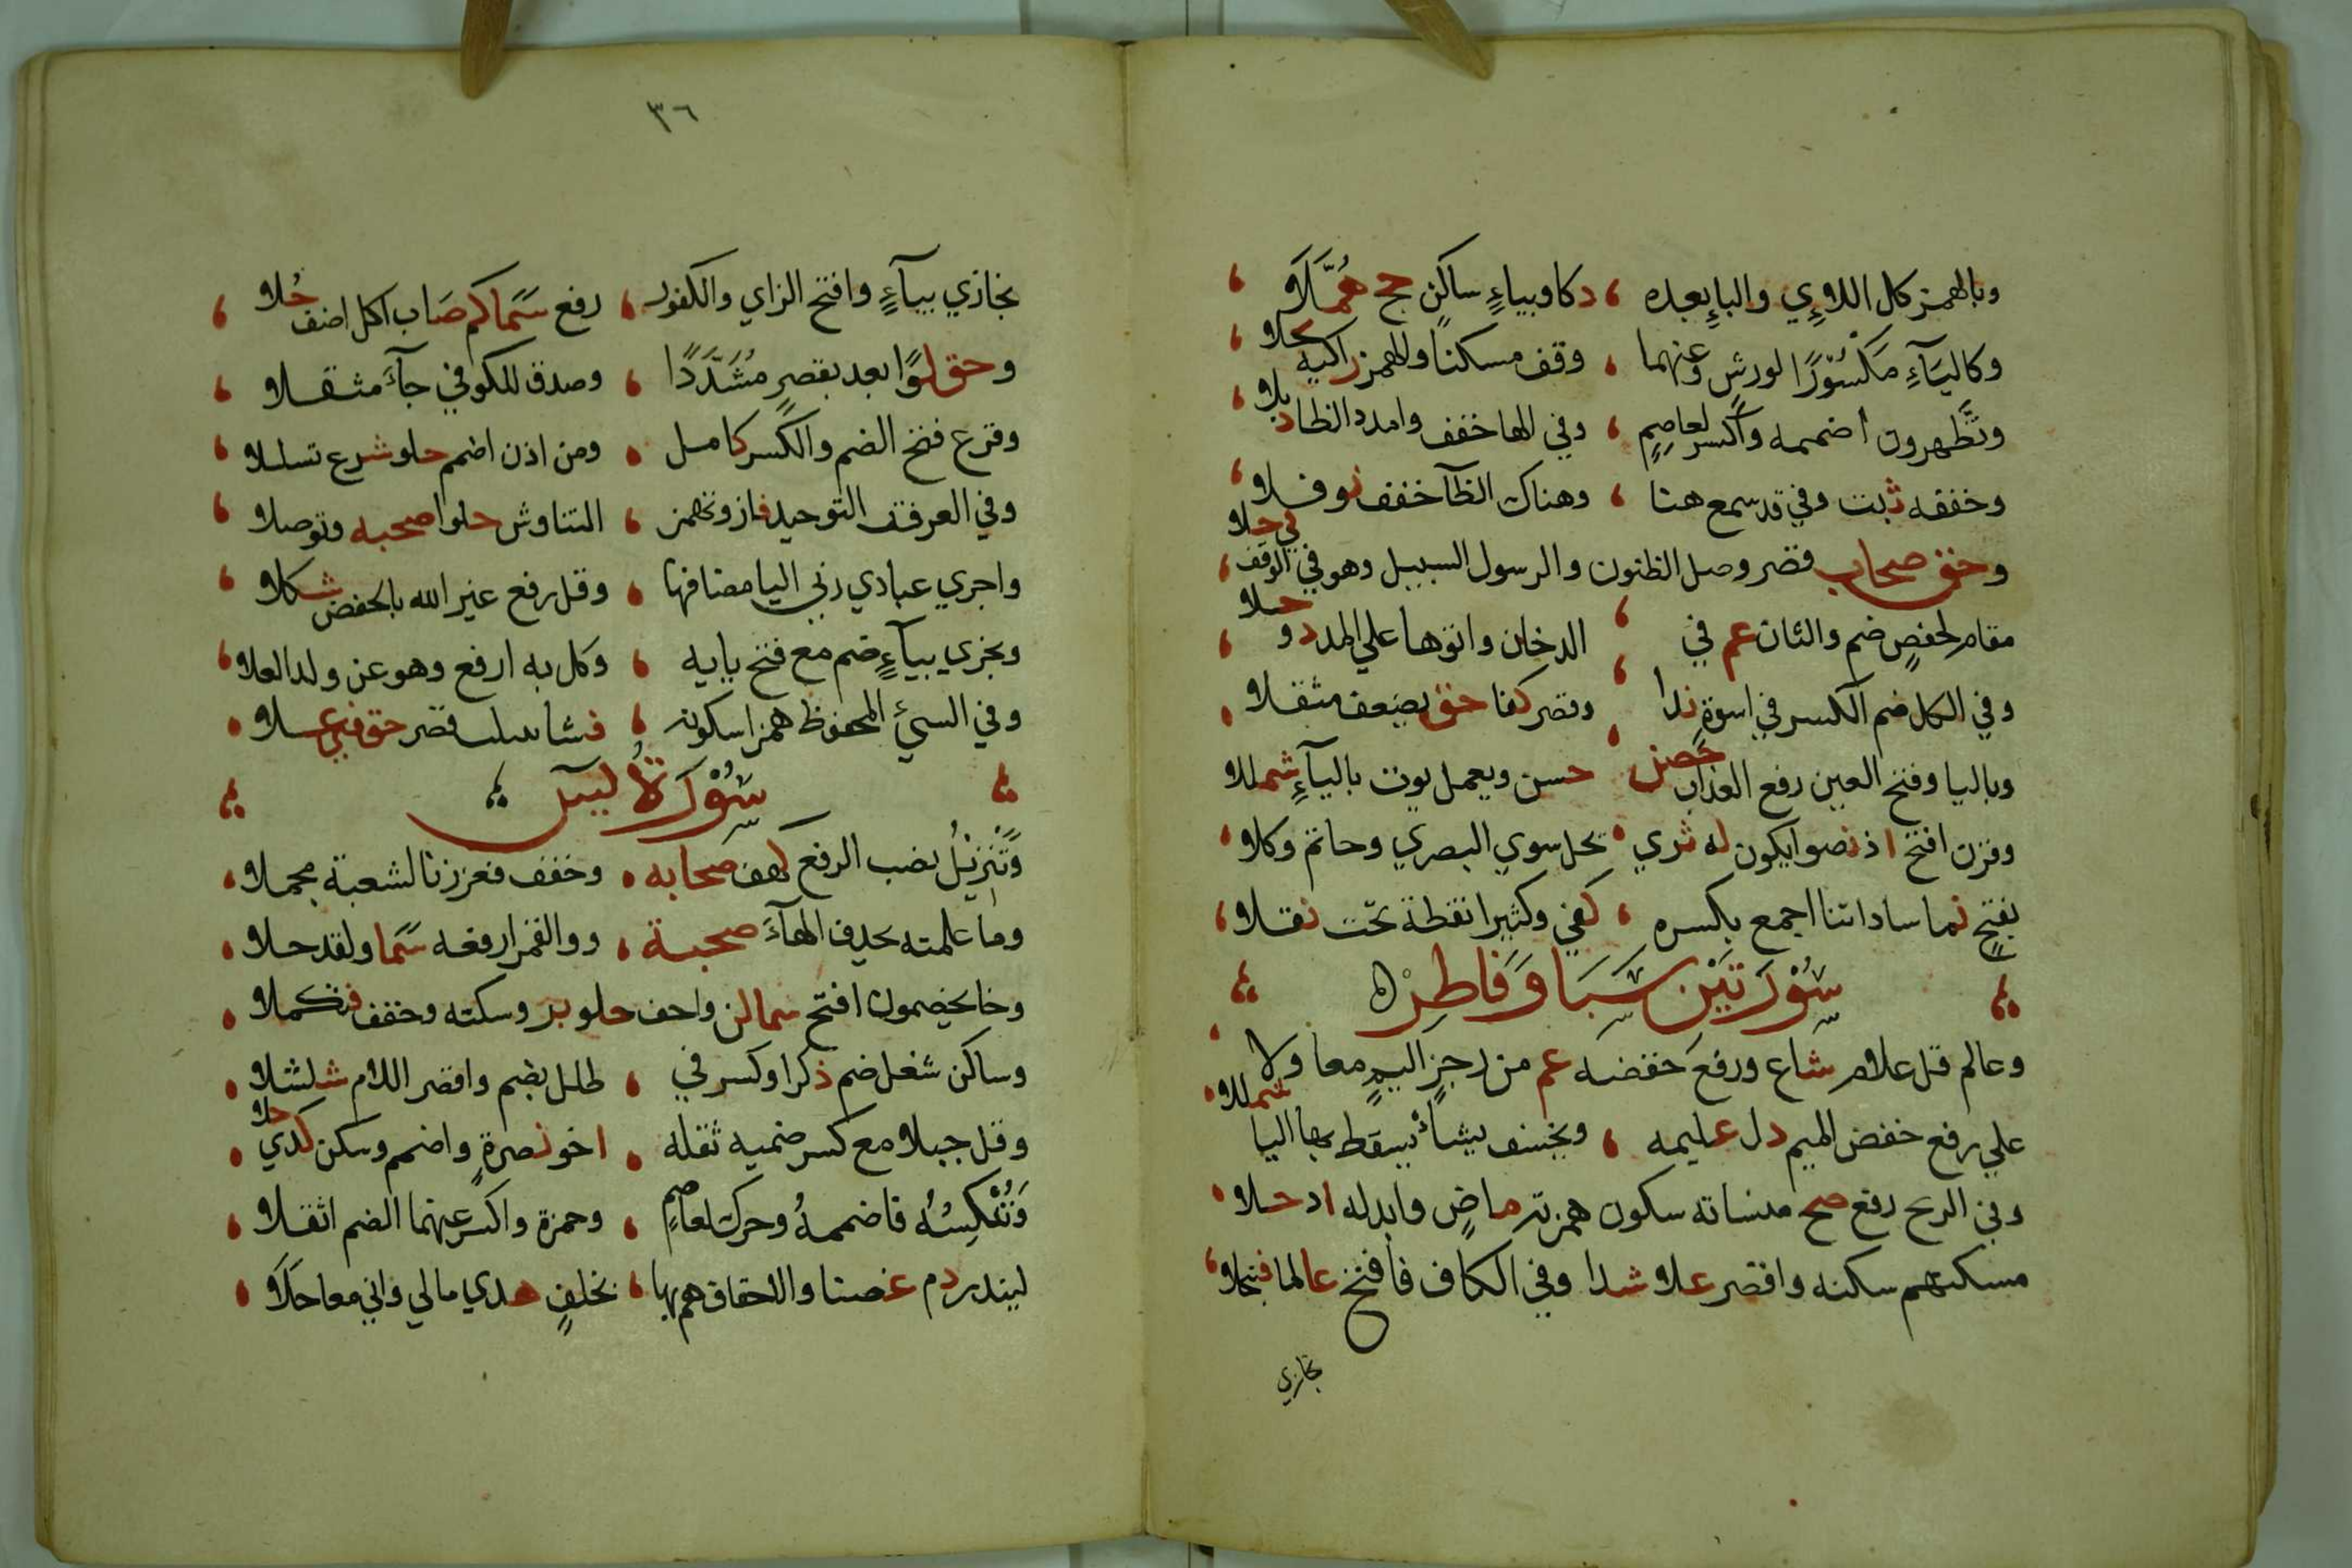 وبالهمز كل اللاءي والياء بعده ، ذكا وبياء ساكن حج هملا ،
وكالياء مكسورا لورش وعنهما ، وقف مسكنا والهمز زاكيه بجلا ،
وتظهرون اضممه واكسر لعاصم ، وفي الها خفف وامدد الظا ذبلا ،
وخففه ثبت وفي قد سمع هنا ، وهناك الظآ خفف نوفلا ،
وحق صحاب قصر وصل الظنون والرسول السبيل وهو في الوقف في حلا ،
مقام لحفص ضم والثان عم في ، الدخان واتوها علي المد ذو حلا ،
وفي الكل ضم الكسر في اسوة ندا ، وقصر كفا حق يضعف مثقلا ،
وباليا وفتح العين رفع العذاب حصن ، حسن ويعمل يوت باليآء شمللا
وقرن افتح اذ نصوا يكون له ثوي ، يحل سوي البصري وخاتم وكلا ،
بفتح نما ساداتنا اجمع بكسره ، كفي وكثيرا نقطة تحت نقلا ،
سورتين سبا وفاطر ه
وعالم قل علام شاع ورفع خفضه عم من رجز اليم معا ولا ،
علي رفع خفض الميم دل عليمه ، ويخسف يشأ يسقط بها اليا شمللا ،
وفي الريح رفع صح منساته سكون همزته ماض وابدله اذ حلا ،
مسكنهم سكنه واقصر علا شذا وفي الكاف فافتح عالما فتبجلا ،
نجازي
٣٦
نجازي بيآء وافتح الزاي والكفور ، رفع سما كم صاب اكل اضف حلا ،
وحق لوا بعد بقصر مشددا ، وصدق للكوفي جآء مثقلا ،
وفزع فتح الضم والكسر كامل ، ومن اذن اضمم حلو شرع تسلسلا ،
وفي الغرفة التوحيد فاز وتهمز ، التناوش حلوا صحبه وتوصلا ،
واجري عبادي ربي اليا مضافها ، وقل رفع غير الله بالخفض شكلا ،
ويجزي بيآء ضم مع فتح يايه ، وكل به ارفع وهو عن ولد العلا ،
وفي السيئ المحفوظ همزا سكونه ، فشا بينات قصر حق فتي علا ،
سورة يس
وتنزيل نصب الرفع كهف صحابه ، وخفف فعززنا لشعبة مجملا ،
وما علمته بحذف الهآء صحبة ، ووالقمر ارفعه سما ولقد حلا ،
وخا يخصمون افتح سما لذ واخف حلو بر وسكنه وخفف فتكملا ،
وساكن شغل ضم ذكرا وكسر في ، ظلل بضم واقصر اللام شلشلا ،
وقل جبلا مع كسر ضميه ثقله ، اخو نصرة واضمم وسكن كذي حلا ،
وننكسه فاضممه وحرك لعاصم ، وحمزة واكسر عنهما الضم اثقلا ،
لينذر دم غصنا والاحقاف هم بها ، بخلف هدي مالي واني معا حلا ،